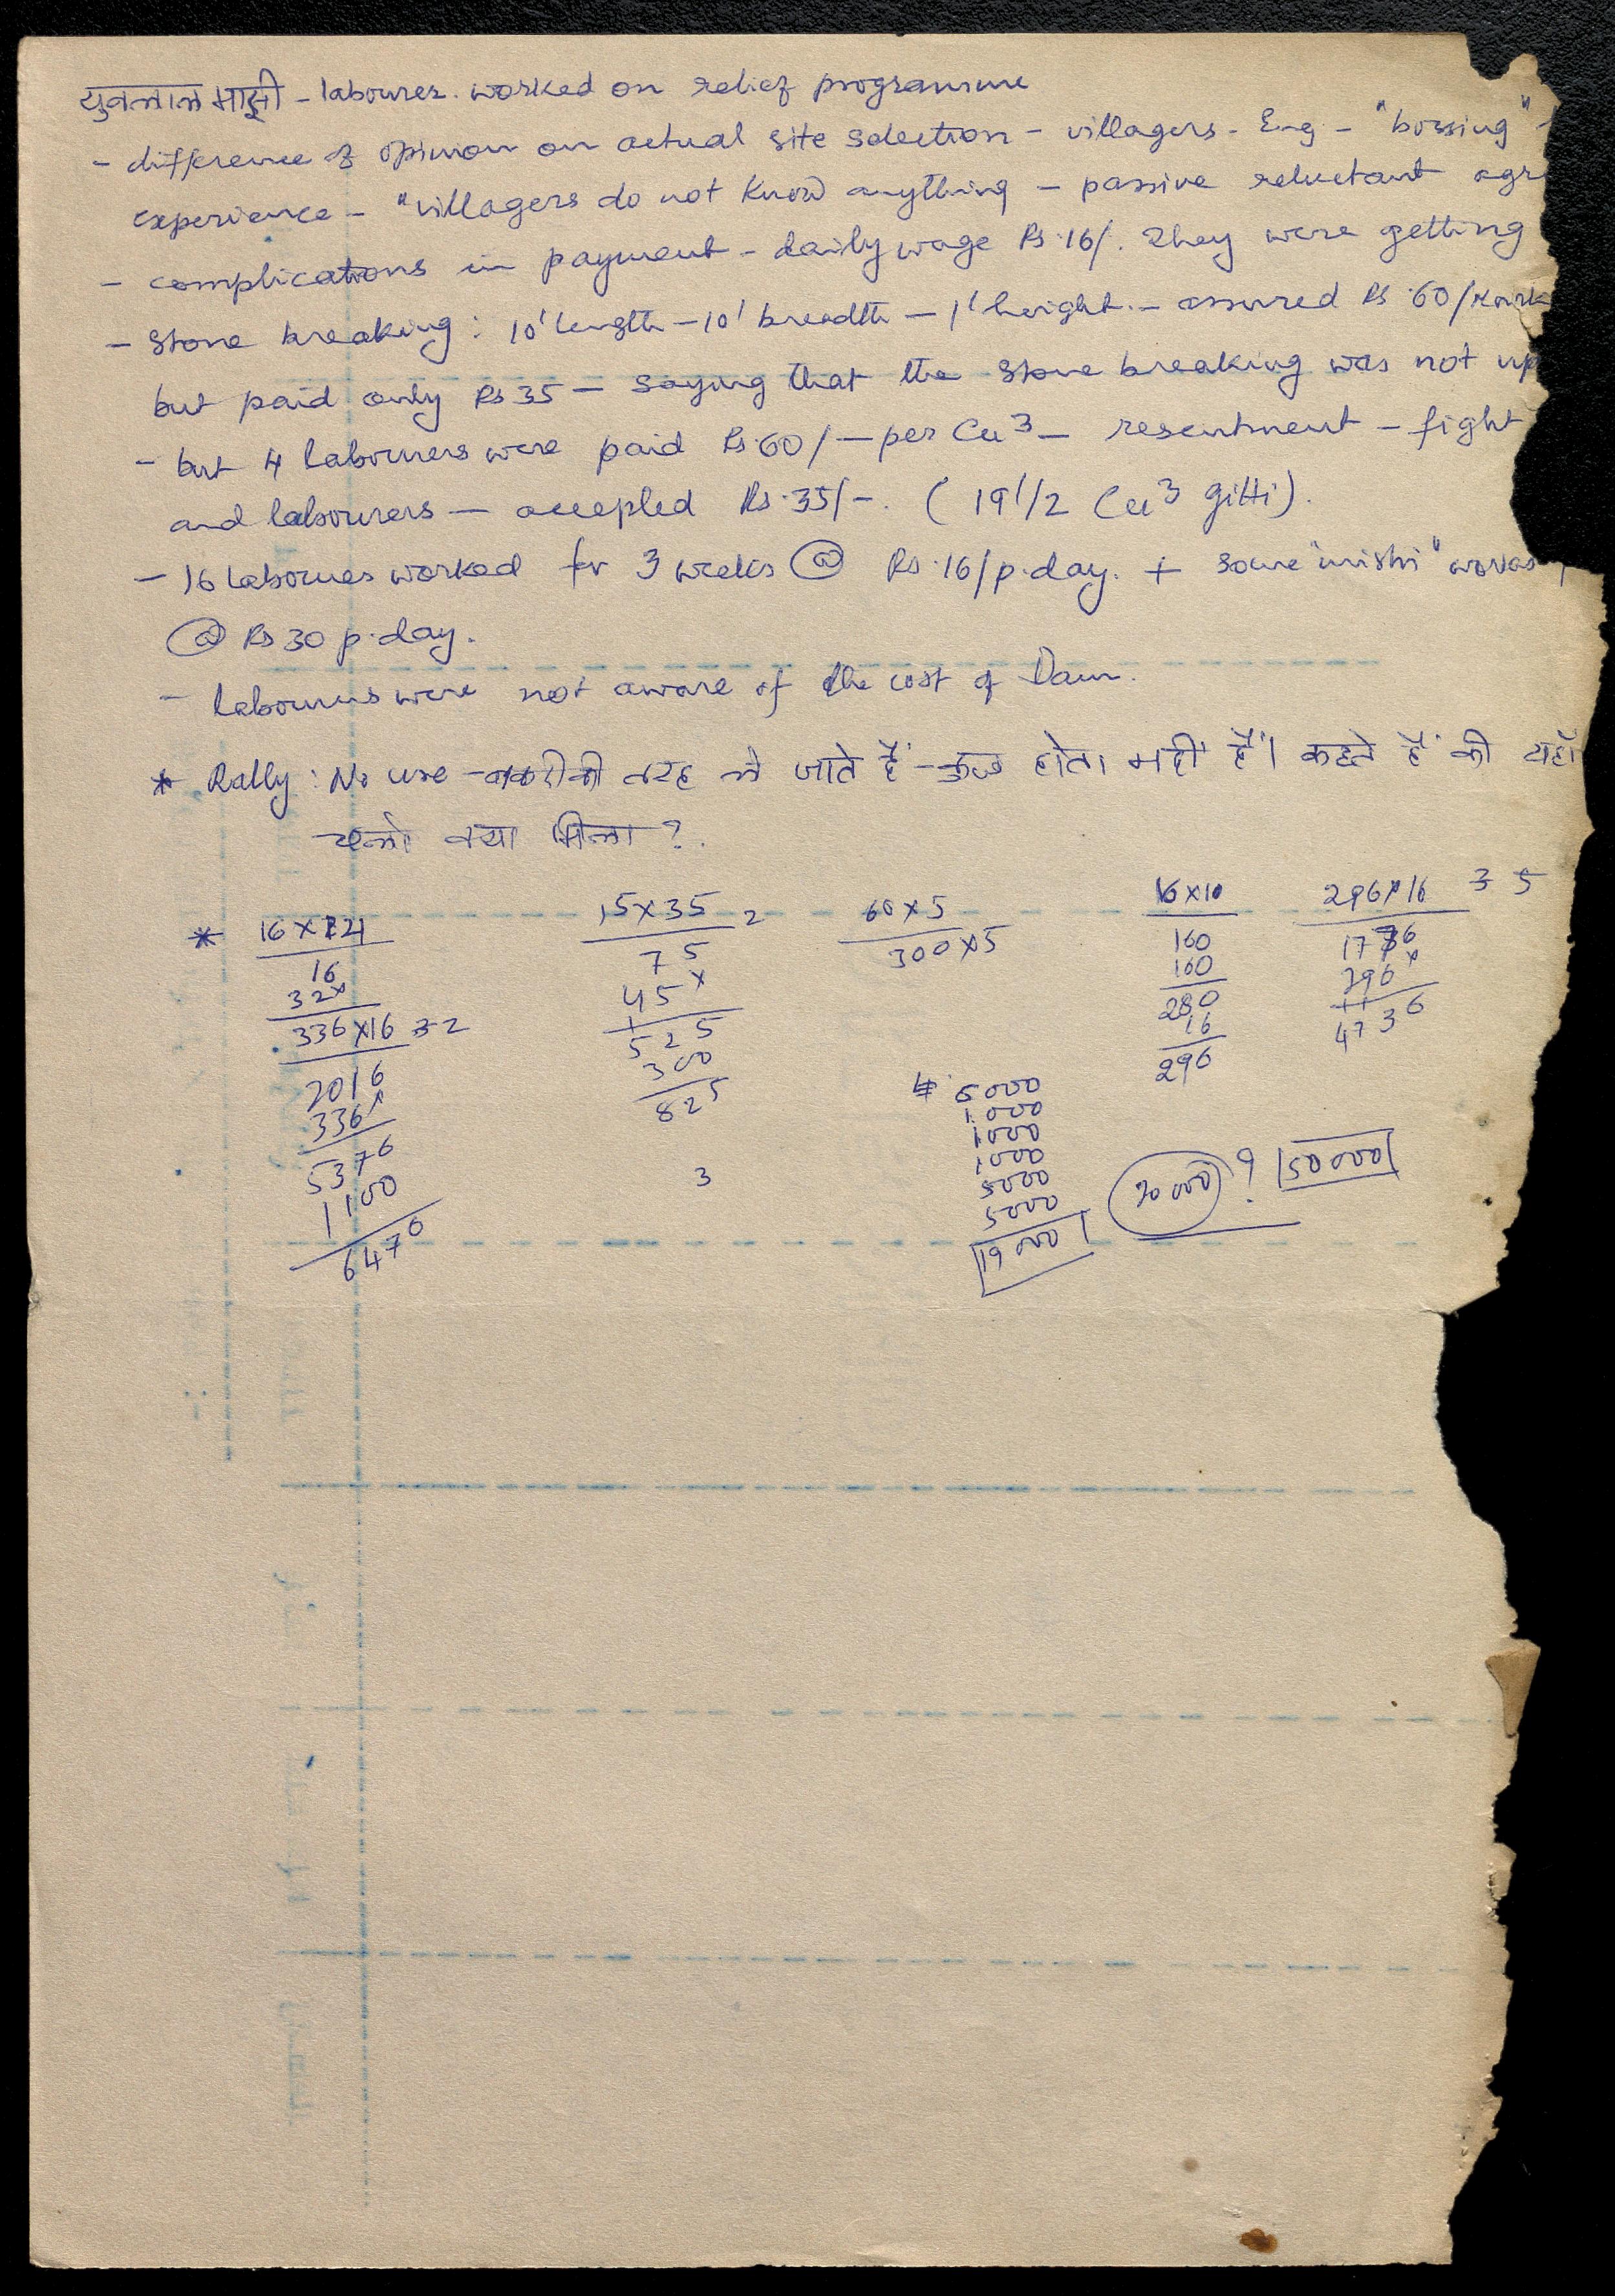 माझी - labourer. worked on relief programme
- difference of opinion on actual site selection - villagers - Eng - "bossing"
experience - "villagers do not know anything - passive reluctant agr
- complications in payment - daily wage Rs.16/. They were getting
- Stone breaking : 10' length - 10' breadth - 1' height - assured Rs.60/
but paid only Rs 35 - saying that the stone breaking was not up
- but 4 labourers were paid Rs.60/- per Cu³ - resentment - fight
and labourers - accepted Rs.35/-. ( 19 1/2 Cu³ gitti).
- 16 labourers worked for 3 weeks @ Rs.16/p.day. + some "mistri"
@ Rs 30 p.day.
- labourers were not aware of the cost of Dam.
* Rally : No use - बकरी की तरह ले जाते हैं - कुछ होता नहीं हैं। कहते हैं की यहाँ
चलो क्या मिला ?
* 16 x 21
16
32x
336 x 16 32
2016
336x
5376
1100
6476
15 x 35 2
75
45x
525
300
825
3
60 x 5
300 x 5
5000
1000
1000
1000
5000
5000
19000
20000 ? 50000
16 x 10
160
160
280
16
296
296 x 16 3 5
1776
296x
4736